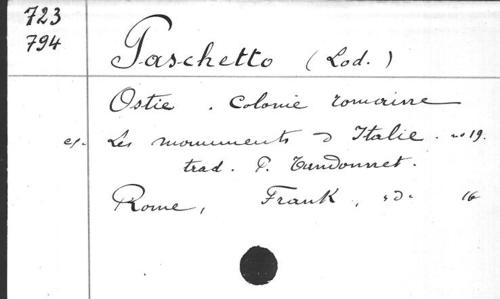 723
794
Paschetto (Lod.)
Ostie. Colonie romaine
cf. Les monuments d'Italie. no 19.
trad. P. Tandonnet.
Rome, Frank, s.d. 16